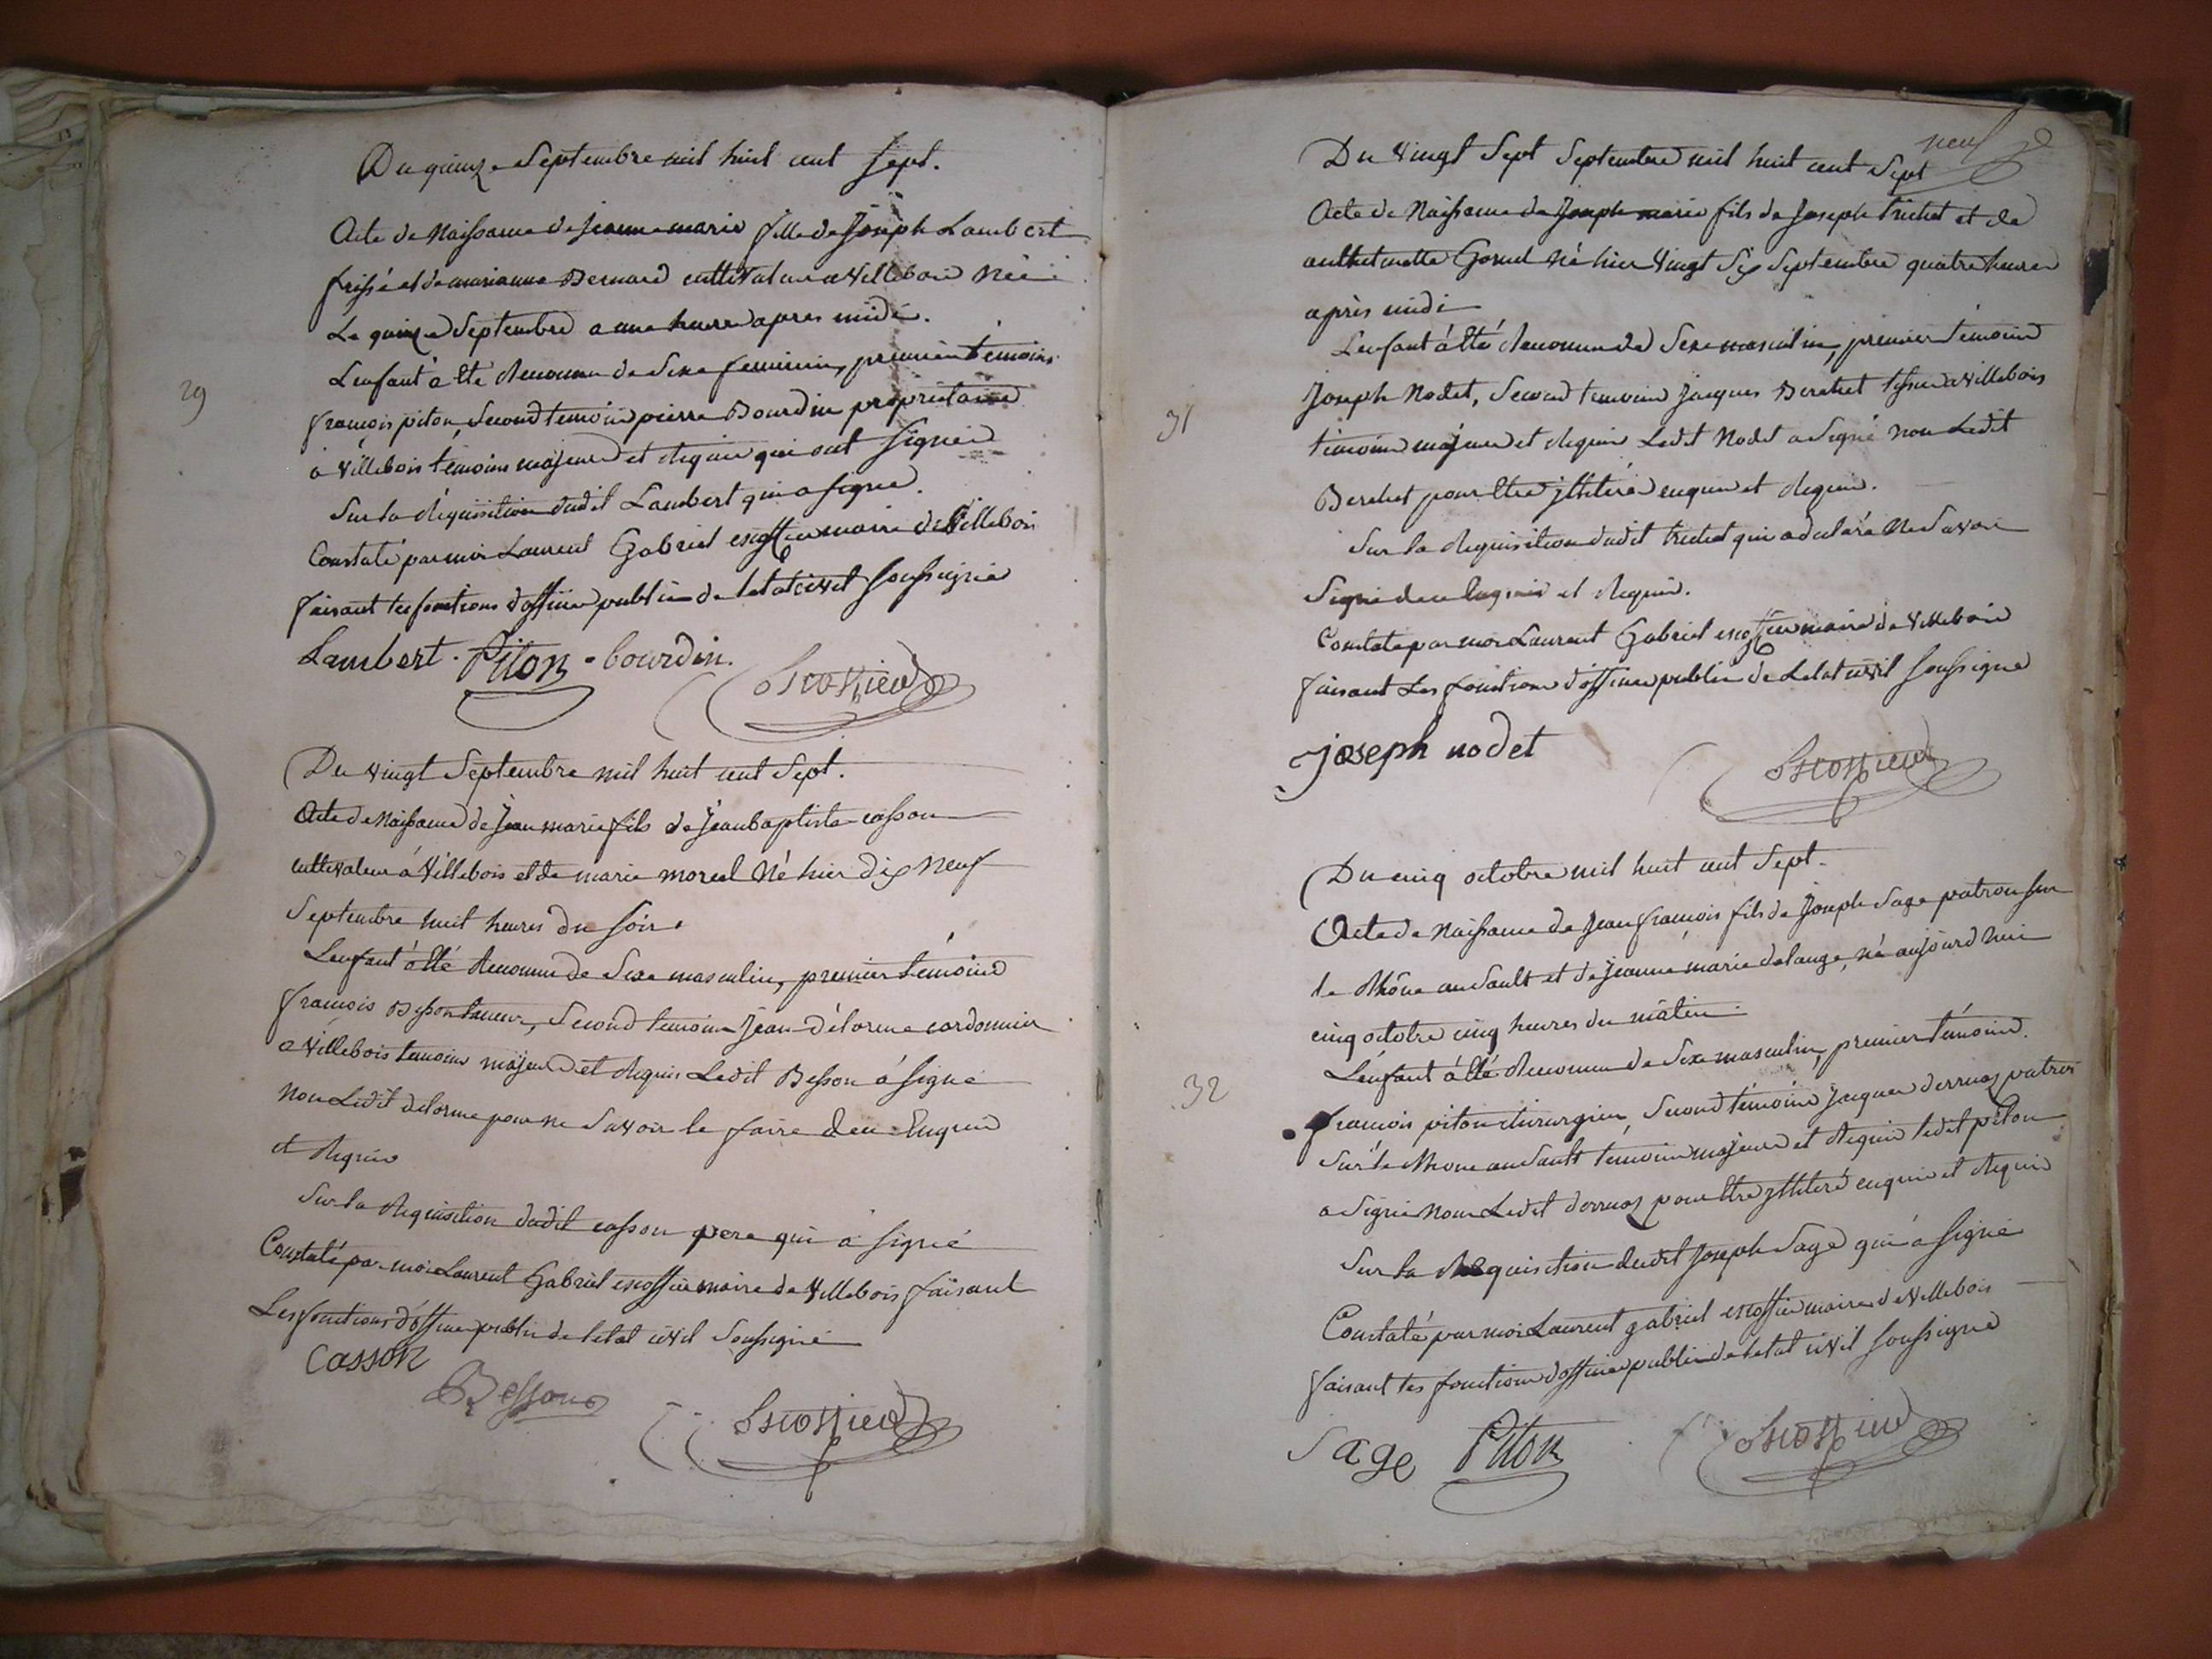 Du quinze Septembre mil huit cent Sept.
Acte de Naissance de jeanne marie fille de Joseph Lambert
frissé et de marianne Bernard cultivateur a Villebois Née
Le quinze Septembre a une heure apres midi.
L'enfant à été Reconnu de Sexe feminin, premier témoins
29
françois piton, Second temoin pierre Bourdin propriétaire
à Villebois témoins majeurs et Requis qui ont Signés
Sur la Réquisition dudit Lambert qui a signé.
Constaté par moi Laurent Gabriel escoffier maire de Villebois
faisant les fonctions d'officier public de letat civil soussigné
Lambert. Piton - bourdin.
Escoffier
Du vingt Septembre mil huit cent Sept.
Acte de Naissance de Jean marie fils de Jean baptiste casson
cultivateur à Villebois et de marie morel Né hier dix Neuf
Septembre huit heures du soir.
L'enfant à été Reconnu de Sexe masculin, premier témoins
françois Besson tanneur, Second temoin Jean Délorme cordonnier
a Villebois temoins majeurs et Requis Ledit Besson à signé
Non Ledit delorme pour ne Savoir le faire de ce Enquis
et Requis
Sur la Requisition dudit casson pere qui a signé
Constaté par moi Laurent Gabriel escoffier maire de Villebois faisant
Les fonctions d'officier public de letat civil Soussigné
Casson
Besson
Escoffier
neuf
Du Vingt Sept Septembre mil huit cent Sept
Acte de Naissance de Joseph marie fils de Joseph trichet et de
anthelmette Gonel Né hier Vingt Six Septembre quatre heures
après midi
L'enfant à été Reconnu de Sexe masculin, premier témoins
31
Joseph Nodet, Second temoin Jacques Berchet tissier a Villebois
témoins majeurs et Requis Ledit Nodet a Signé non Ledit
Berchet pour être jlliteré enquis et Requis.
Sur la Requisition dudit trichet qui a declaré Ne Savoir
Signé de ce Enquis et Requis.
Constaté par moi Laurent Gabriel escoffier maire de Villebois
faisant Les fonctions d'officier public de Letat civil soussigné
joseph nodet
Escoffier
Du cinq octobre mil huit cent Sept.
Acte de Naissance de Jean françois fils de Joseph Sage patron sur
le Rhône au Sault et de Jeanne marie delange, né aujourd'hui
cinq octobre cinq heures du matin.
L'enfant à été Reconnu de Sexe masculin, premier témoins
32
françois piton chirurgien, Second témoins jacques derruaz patron
Sur le Rhone au Sault temoins majeurs et Requis ledit piton
a Signé Non Ledit derruaz pour être jlliteré enquis et Requis
Sur la Requisition dudit Joseph Sage qui a Signé
Constaté par moi Laurent gabriel escoffier maire de Villebois
faisant les fonctions d'officier public de letat civil soussigné
Sage Piton
Escoffier